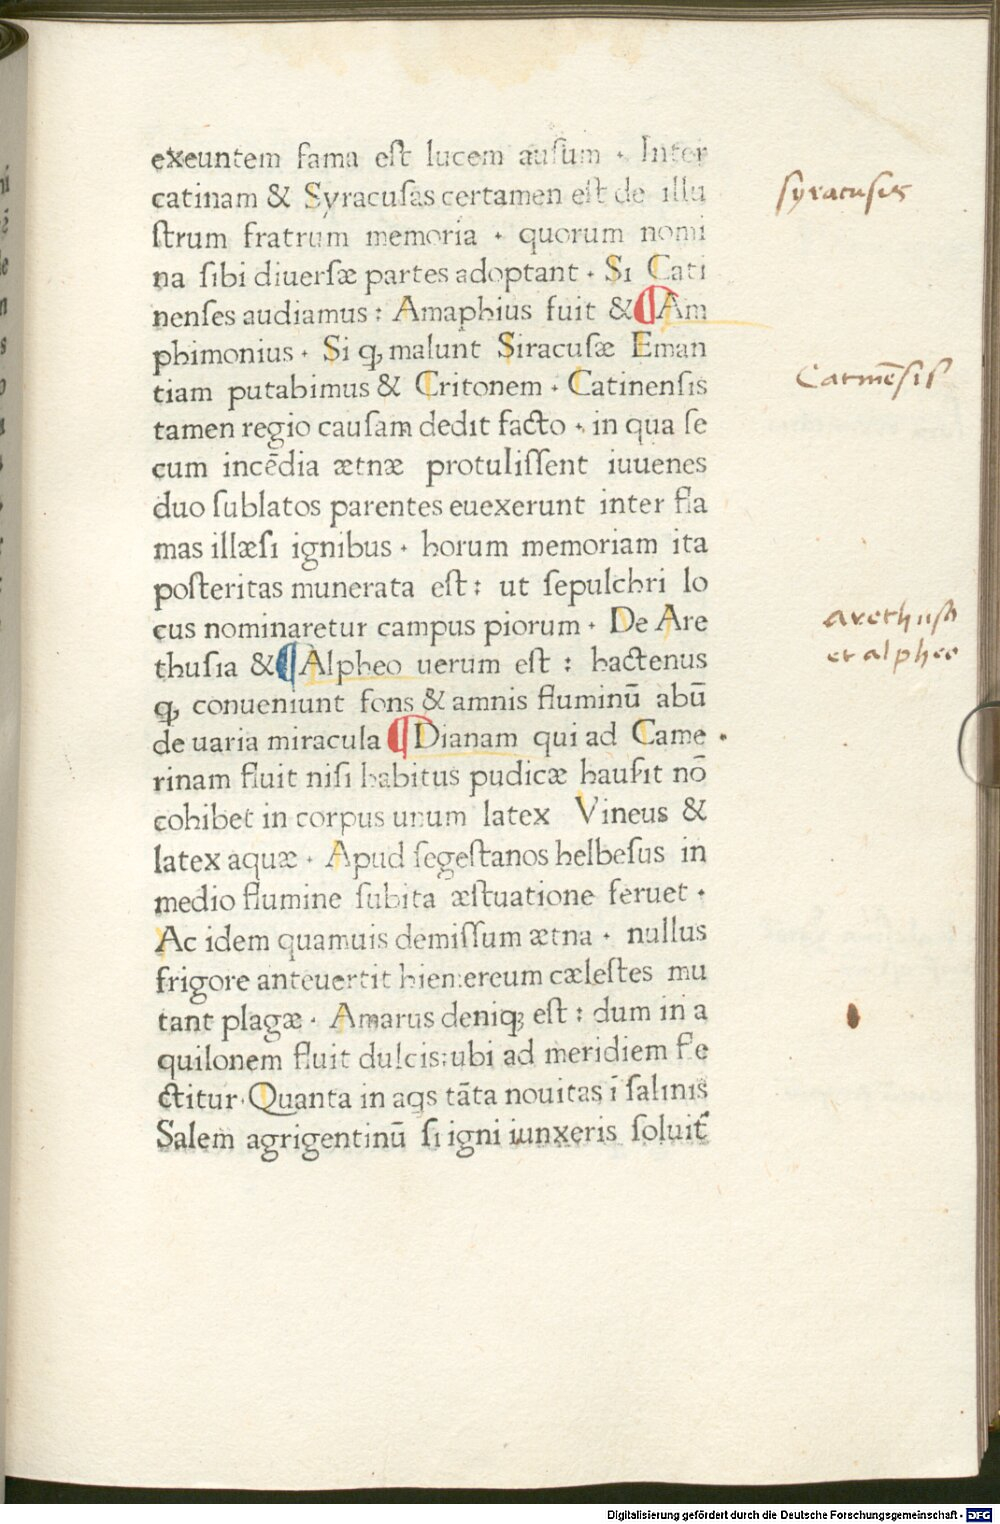 exeuntem fama eſt lucem auſum · Inter
catinam & Syracuſas certamen eſt de illu
ſtrum fratrum memoria · quorum nomi
na ſibi diuerſæ partes adoptant · Si Cati
nenſes audiamus : Amaphius fuit & ¶ Am
phimonius · Si qꝫ malunt Siracuſæ Eman
tiam putabimus & Critonem · Catinenſis
tamen regio cauſam dedit facto · in qua ſe
cum incēdia ætnæ protuliſſent iuuenes
duo ſublatos parentes euexerunt inter fla
mas illæſi ignibus · horum memoriam ita
poſteritas munerata eſt : ut ſepulchri lo
cus nominaretur campus piorum · De Are
thuſia & ¶ Alpheo uerum eſt : hactenus
qꝫ conueniunt fons & amnis fluminū abū
de uaria miracula ¶ Dianam qui ad Came
rinam fluit niſi habitus pudicæ hauſit nō
cohibet in corpus unum latex Vineus &
latex aquæ · Apud ſegeſtanos helbeſus in
medio flumine ſubita æſtuatione feruet ·
Ac idem quamuis demiſſum ætna · nullus
frigore anteuertit hiemereum cæleſtes mu
tant plagæ · Amarus deniqꝫ eſt : dum in a
quilonem fluit dulcis : ubi ad meridiem fle
ctitur · Quanta in aqs tāta nouitas ī ſalinis
Salem agrigentinū ſi igni iunxeris ſoluit᷑
ſyracuſis
Catinēſis
arethuſa
et alpheo
Digitalisierung gefördert durch die Deutsche Forschungsgemeinschaft - DFG